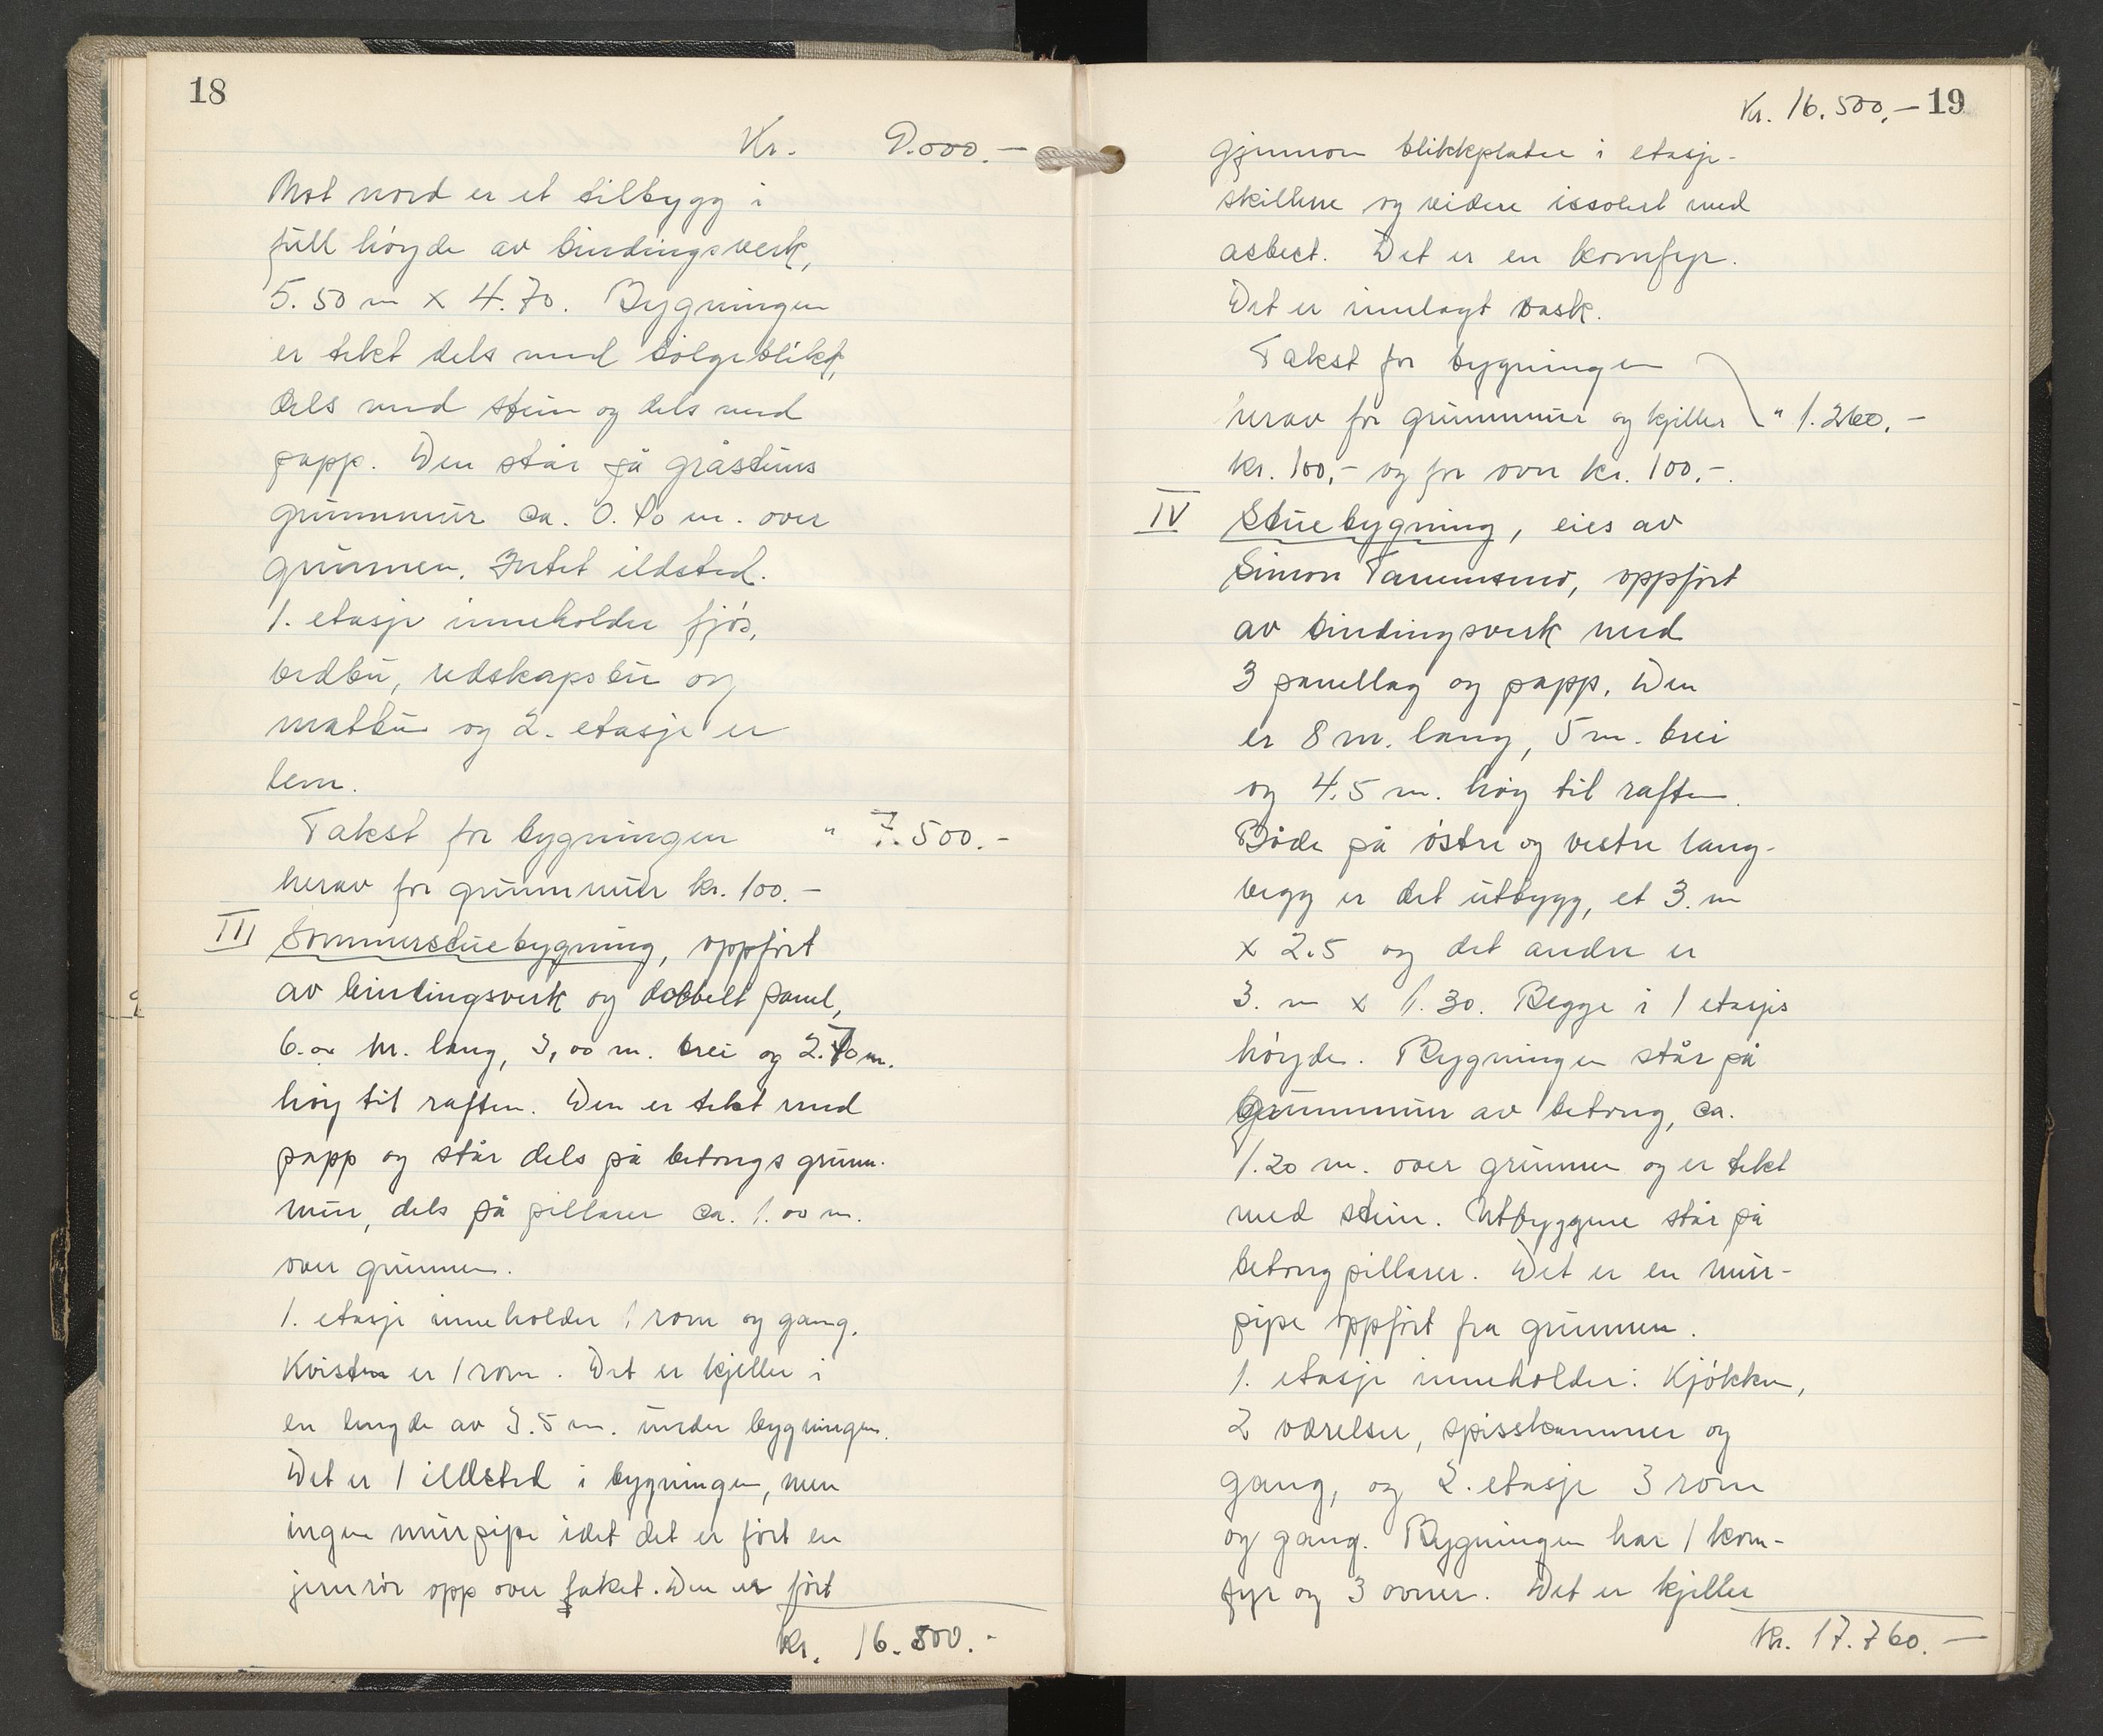 18
Kr. 9.000.-
Mot nord er et tilbygg i
full høyde av bindingsverk,
5.50 m x 4.70. Bygningen
er tekt dels med bølgeblikk,
dels med stein og dels med
papp. Den står på gråsteins
grunnmur ca. 0.40 m. over
grunnen. Intet ildsted.
1. etasje inneholder fjøs,
vedbu, redskapsbu og
matbu og 2. etasje er
lem.
Takst for bygningen " 7.500.-
herav for grunnmur kr. 100.-
III Sommerstuebygning, oppført
av bindingsverk og dobbelt panel,
6.00 m. lang, 3,00 m. brei og 2.70 m.
høy til raften. Den er tekt med
papp og står dels på betongs grunn-
mur, dels på pillarer ca. 1.00 m.
over grunnen.
1. etasje inneholder 1 rom og gang.
Kvisten er 1 rom. Det er kjeller i
en lengde av 3.5 m. under bygningen.
Det er 1 illdsted i bygningen, men
ingen murpipe idet det er ført en
jernrør opp over taket. Den er ført
kr. 16.500.-
19
Kr. 16.500,-
gjennom blikkplater i etasje-
skillene og videre issolert med
asbest. Det er en komfyr.
Det er innlagt vask.
Takst for bygningen
herav for grunnmur og kjeller " 1.260.-
kr. 100,- og for ovn kr. 100.-.
IV Stuebygning, eies av
Simon oppført
av bindingsverk med
3 panellag og papp. Den
er 8 m. lang, 5 m. brei
og 4.5 m. høy til raften.
Både på østre og vestre lang-
vegg er det utbygg, et 3. m
x 2.5 og det andre er
3. m x 1.30. Begge i 1 etasjes
høyde. Bygningen står på
grunnmur av betong, ca.
1.20 m. over grunnen og er tekt
med stein. Utbyggene står på
betongpillarer. Det er en mur-
pipe oppført fra grunnen.
1. etasje inneholder: Kjøkken,
2 værelser, spisskammer og
gang, og 2. etasje 3 rom
og gang. Bygningen har 1 kom-
fyr og 3 ovner. Det er kjeller
Kr. 17.760.-